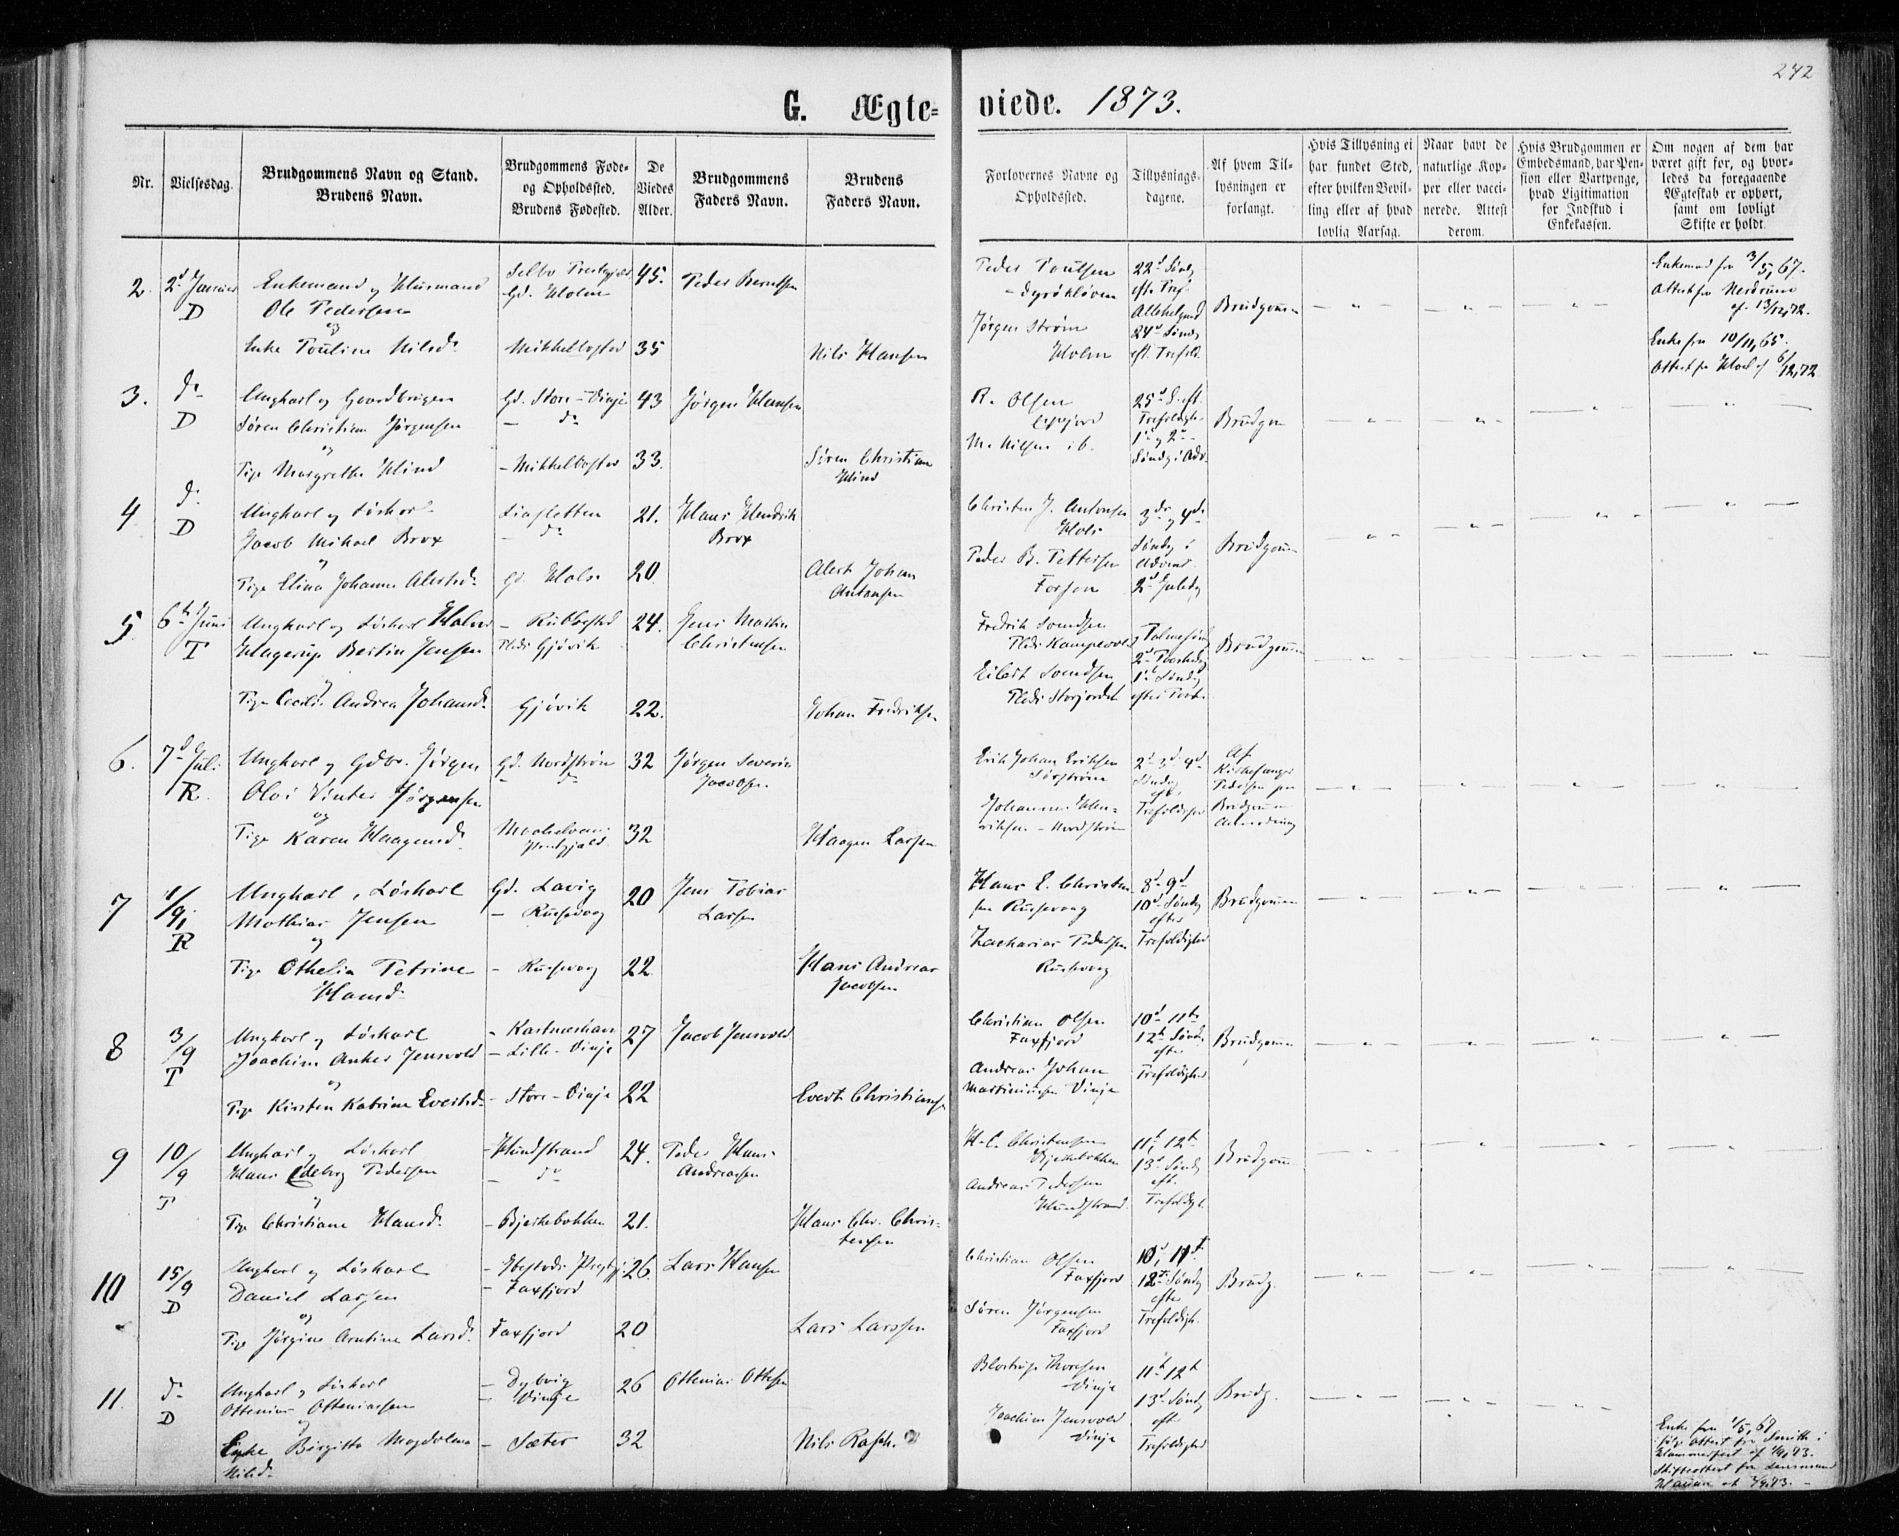 242
G. Ægte=
viede. 1873.
Nr.
Vielsesdag.
Brudgommens Navn og Stand.
Brudens Navn.
Brudgommens Føde-
og Opholdssted.
Brudens Fødested.
De
Viedes
Alder.
Brudgommens
Faders Navn.
Brudens
Faders Navn.
Forlovernes Navne og
Opholdssted.
Tillysnings-
dagene.
Af hvem Til-
lysningen er
forlangt.
Hvis Tillysning ei
har fundet Sted,
efter hvilken Bevil-
ling eller af hvad
lovlig Aarsag.
Naar havt de
naturlige Kop-
per eller vacci-
nerede. Attest
derom.
Hvis Brudgommen er
Embedsmand, har Pen-
sion eller Vartpenge,
hvad Ligitimation
for Indskud i
Enkekassen.
Om nogen af dem har
været gift før, og hvor-
ledes da foregaaende
Ægteskab er ophørt,
samt om lovligt
Skifte er holdt.
2. 2d Januar D
Enkemand og Husmand
Ole Pedersen
og
Enke Pouline Nilsd.
Selbo Prestegjæld
Gd. Holm
Mikkelbosted
45.
35
Peder Berntsen
Nils Hansen
Peder Poulsen
Jørgen Strøm
Holm
22d Søndg
24d Søndg
eft. Trefold.
Brudgommen
Enkemand fra 3/5, 67.
Enke fra 10/11, 65.
3. do D
Ungkarl og Gaardbruger
Søren Christian Jørgensen
og
Pige Margrethe Hind
Gd. Store-Vinje
— do
— Mikkelbosted
43
33.
Jørgen Hansen
Søren Christian
Hind
R. Olsen
M. Nilsen ib.
25d S. eft.
Trefoldigh.
1ste og 2den
Søndg i Adv.
Brudgom
4 do D
Ungkarl og Løskarl
Jacob Mikael Brox
og
Pige Elina Johanna Alertsd.
Liasletten
— do
Gd. Hals
21.
20
Hans Hendrik
Brox
Alert Johan
Antonsen
Christen J. Antonsen
Hals
Peder B. Pettersen
Forsøen
3die og 4de
Søndg i
Advent
2d Juledg
Brudgommen
5. 6te Juni T
Ungkarl og Løskarl Halvor
Hagerup Bertin Jensen
og
Pige Cecilie Andrea Johansd.
Gjøvik
Gjøvik
24.
22.
Jens Martin
Christensen
Johan Fredriksen
Fredrik Svendsen
Eilert Svendsen
Palmesøndg
2d Paaskedg
1ste Søndg
Brudgommen
6. 7d Juli R.
Ungkarl og Gdbr. Jørgen
Olai Vinter Jørgensen
og
Pige Karen Haagensd.
Gd. Nordstrøm
— do
32
32
Jørgen Severin
Jacobsen
Haagen Larsen
Erik Johan Eriksen
Sørstrøm
Johannes Hen-
riksen - Nordstrøm
2d 3d 4d
Søndg
eft.
Trefoldighed
Af
Kirkesanger
Pedersen paa
Brudgommens
Anmodning
7 1/9, R
Ungkarl, Løskarl
Mathias Jensen
og
Pige Othelia Petrine
Hansd.
Gd. Lavig
— Russevaag
— Russevaag
20
22
Jens Tobias
Larsen
Hans Andreas
Jacobsen
Hans E. Christen-
sen Russevaag
Zacharias Pedersen
Russevaag
8d 9d
10d Søndg
efter
Trefoldighed
Brudgommen
8 3/9 T
Ungkarl og Løskarl
Joachim Anker Jensvold
og
Pige Kirsten Katrine Evertsd.
— Kastneshavn
— Lille-Vinje
— Store-Vinje
27
22
Jacob Jensvold
Evert Christiansen
Christian Olsen
Faxfjord
Andreas Johan
Martiniusen Vinje
10d 11te
12te Søndg
efter
Trefoldighed
Brudgommen
9 10/9 T
Ungkarl og Løskarl
Hans Edeberg Pedersen
og
Pige Christiane Hansd.
— Hundstrand
— do
— Bjerkebakken
24.
21.
Peder Hans
Andreasen
Hans Chr. Chris-
tensen
H. C. Christensen
Bjerkebakken
Andreas Pedersen
Hundstrand
11te, 12te
13d Søndg
eft.
Trefoldigh.
Brudgomm
10 15/9 D
Ungkarl og Løskarl
Daniel Larsen
og
Pige Jørgine Arntine Larsd.
— Faxfjord
Faxfjord
26.
20
Lars Hansen
Lars Larssen
Christian Olsen
Faxfjord
Søren Jørgensen
Faxfjord
10d, 11te
12te Søndg
efter
Trefoldigh.
Brudg.
11. do D
Ungkarl og Løskarl
Ottenius Otteniussen
og
Enke Birgitta Magdalena
Nilsd.
— Dybvig
— Vinje
— Sæter
26
32
Ottenius Ottesen
Nils Rasch.
Thoresen
Vinje
Joachim Jensvold
Vinje
11te 12te
13d Søndg
eft
Trefoldighed
Brudg.